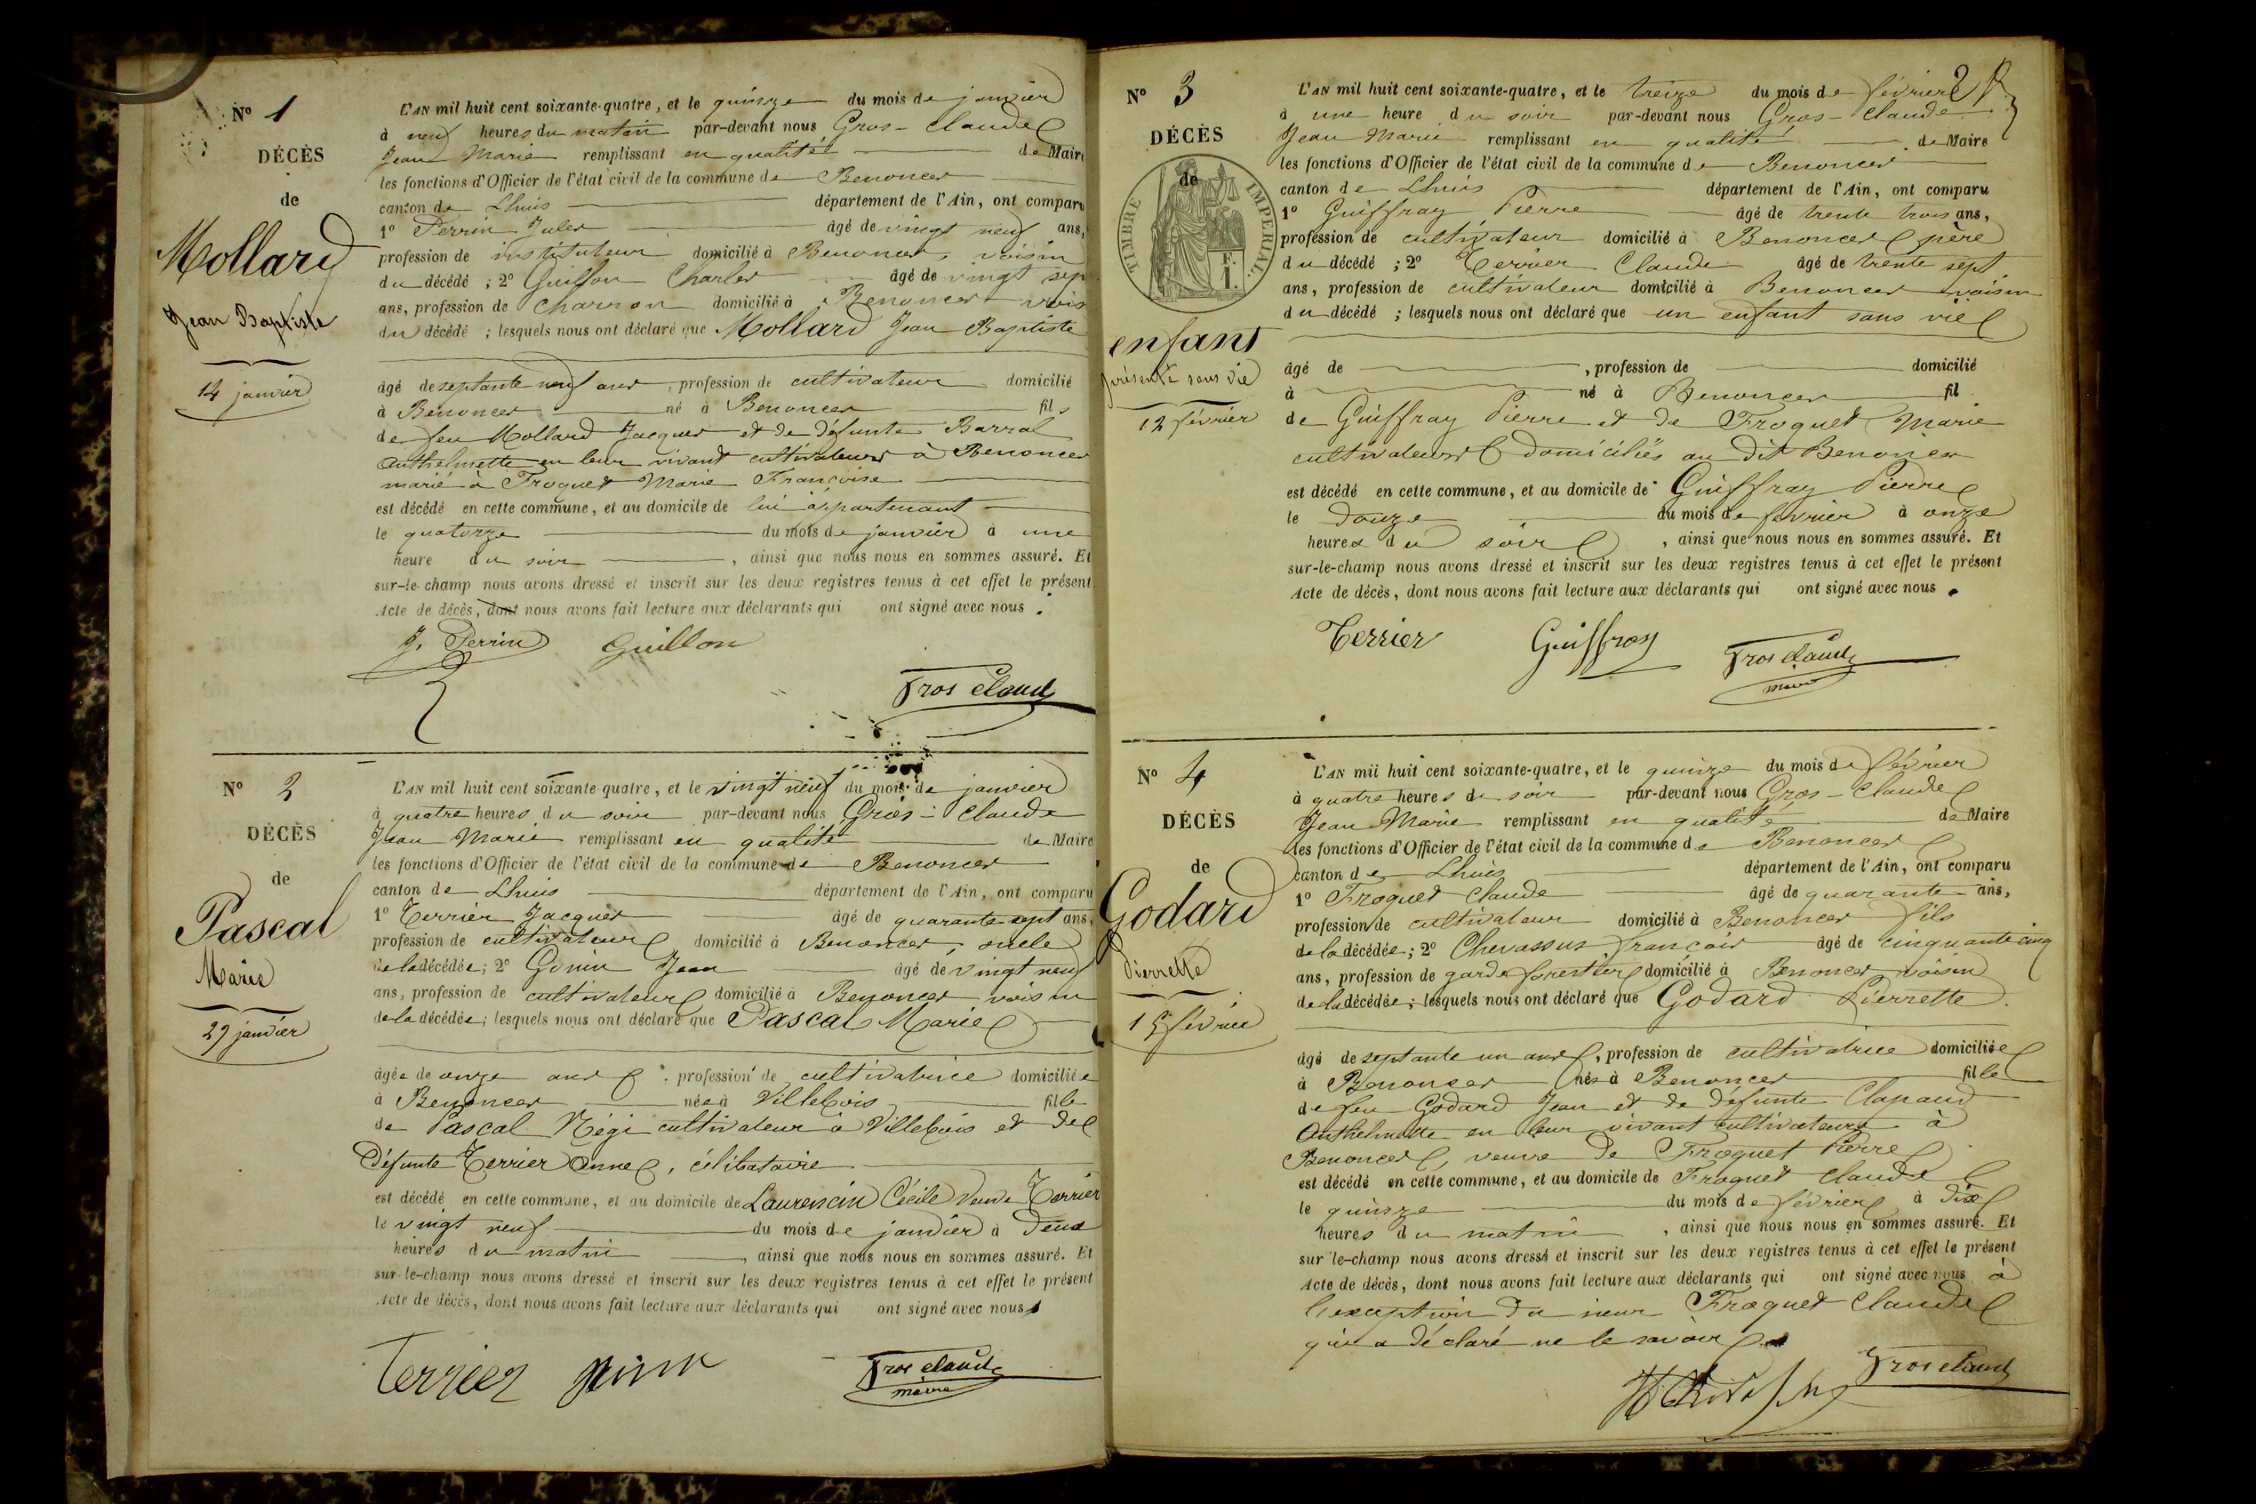 N° 1
DÉCÈS
de
Mollard
Jean Baptiste
14 janvier
L'AN mil huit cent soixante-quatre, et le quinze du mois de janvier
à neuf heures du matin par-devant nous Gros-Claude
Jean Marie remplissant en qualité de Maire
les fonctions d'Officier de l'état civil de la commune de Benonces
canton de Lhuis département de l'Ain, ont comparu
1° Perrin Jules âgé de vingt neuf ans,
profession de instituteur domicilié à Benonces, voisin
du décédé ; 2° Guillon Charles âgé de vingt sep
ans, profession de charron domicilié à Benonces vois
du décédé ; lesquels nous ont déclaré que Mollard Jean Baptiste
âgé de septante neuf ans, profession de cultivateur domicilié
à Benonces né à Benonces fils
de feu Mollard Jacques et de défunte Barral
Anthelmette en leur vivant cultivateurs à Benonces
marié à Froquet Marie Françoise
est décédé en cette commune, et au domicile de lui appartenant
le quatorze du mois de janvier à une
heure du soir, ainsi que nous nous en sommes assuré. Et
sur-le-champ nous avons dressé et inscrit sur les deux registres tenus à cet effet le présent
Acte de décès, dont nous avons fait lecture aux déclarants qui ont signé avec nous.
J. Perrin Guillon
Gros Claude
N° 2
DÉCÈS
de
Pascal
Marie
29 janvier
L'AN mil huit cent soixante-quatre, et le vingt neuf du mois de janvier
à quatre heures du soir par-devant nous Gros-Claude
Jean Marie remplissant en qualité de Maire
les fonctions d'Officier de l'état civil de la commune de Benonces
canton de Lhuis département de l'Ain, ont comparu
1° Terrier Jacques âgé de quarante sept ans,
profession de cultivateur domicilié à Benonces, oncle
de la décédée; 2° Gonin Jean âgé de vingt neuf
ans, profession de cultivateur domicilié à Benonces voisin
de la décédée; lesquels nous ont déclaré que Pascal Marie
âgée de onze ans, profession de cultivatrice domiciliée
à Benonces née à Villebois fille
de Pascal Régi cultivateur à Villebois et de
défunte Terrier Anne, célibataire
est décédé en cette commune, et au domicile de Laurencin Cécile veuve Terrier
le vingt neuf du mois de janvier à deux
heures du matin, ainsi que nous nous en sommes assuré. Et
sur-le-champ nous avons dressé et inscrit sur les deux registres tenus à cet effet le présent
Acte de décès, dont nous avons fait lecture aux déclarants qui ont signé avec nous
Terrier gonin Gros claude
maire
2
N° 3
DÉCÈS
de
TIMBRE IMPÉRIAL
F.
1.
enfant
présenté sans vie
12 février
L'AN mil huit cent soixante-quatre, et le treize du mois de février
à une heure du soir par-devant nous Gros-Claude
Jean Marie remplissant en qualité de Maire
les fonctions d'Officier de l'état civil de la commune de Benonces
canton de Lhuis département de l'Ain, ont comparu
1° Guiffray Pierre âgé de trente trois ans,
profession de cultivateur domicilié à Benonces père
du décédé ; 2° Terrier Claude âgé de trente sept
ans, profession de cultivateur domicilié à Benonces voisin
du décédé ; lesquels nous ont déclaré que un enfant sans vie
âgé de , profession de domicilié
à né à Benonces fil
de Guiffray Pierre et de Froquet Marie
cultivateurs domiciliés au dit Benonces
est décédé en cette commune, et au domicile de Guiffray Pierre
le douze du mois de février à onze
heures du soir, ainsi que nous nous en sommes assuré. Et
sur-le-champ nous avons dressé et inscrit sur les deux registres tenus à cet effet le présent
Acte de décès, dont nous avons fait lecture aux déclarants qui ont signé avec nous.
Terrier Guiffray Gros claude
maire
N° 4
DÉCÈS
de
Godard
Pierrette
15 février
L'AN mil huit cent soixante-quatre, et le quinze du mois de février
à quatre heures de soir par-devant nous Gros-Claude
Jean Marie remplissant en qualité de Maire
les fonctions d'Officier de l'état civil de la commune de Benonces
canton de Lhuis département de l'Ain, ont comparu
1° Froquet Claude âgé de quarante ans,
profession de cultivateur domicilié à Benonces fils
de la décédée; 2° Chevassus françois âgé de cinquante cinq
ans, profession de garde forestier domicilié à Benonces voisin
de la décédée; lesquels nous ont déclaré que Godard Pierrette.
âgé de septante un ans, profession de cultivatrice domiciliée
à Benonces née à Benonces fille
de feu Godard Jean et de défunte Clapaud
Anthelmette en leur vivant cultivateurs à
Benonces, veuve de Froquet Pierre
est décédé en cette commune, et au domicile de Froquet Claude
le quinze du mois de février à dix
heures du matin, ainsi que nous nous en sommes assuré. Et
sur-le-champ nous avons dressé et inscrit sur les deux registres tenus à cet effet le présent
Acte de décès, dont nous avons fait lecture aux déclarants qui ont signé avec nous à
l'exception du sieur Froquet Claude
qui a déclaré ne le savoir.
Gros claude